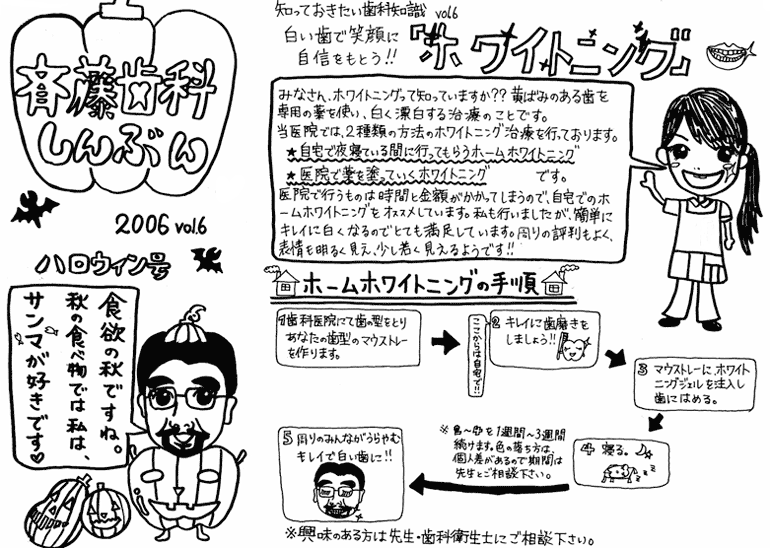 斉藤歯科
しんぶん
2006 vol.6
ハロウィン号
食欲の秋ですね。
秋の食べ物では私は、
サンマが好きです♡
知っておきたい歯科知識 vol.6
白い歯で笑顔に
自信をもとう!!
『ホワイトニング』
みなさん、ホワイトニングって知っていますか?? 黄ばみのある歯を
専用の薬を使い、白く漂白する治療のことです。
当医院では、2種類の方法のホワイトニング治療を行っております。
★自宅で夜寝ている間に行ってもらうホームホワイトニング
★医院で薬を塗っていくホワイトニング です。
医院で行うものは時間と金額がかかってしまうので、自宅でのホ
ームホワイトニングをオススメしています。私も行いましたが、簡単に
キレイに白くなるのでとても満足しています。周りの評判もよく、
表情も明るく見え、少し若く見えるようです!!
ホームホワイトニングの手順
1 歯科医院にて歯の型をとり
あなたの歯型のマウストレー
を作ります。
ここからは自宅で!!
2 キレイに歯磨きを
しましょう!!
3 マウストレーに、ホワイト
ニングジェルを注入し
歯にはめる。
4 寝る。
zzz
※2〜4を1週間〜3週間
続けます。色の落ち方は、
個人差があるので期間は
先生とご相談下さい。
5 周りのみんながうらやむ
キレイで白い歯に!!
※興味のある方は先生・歯科衛生士にご相談下さい。